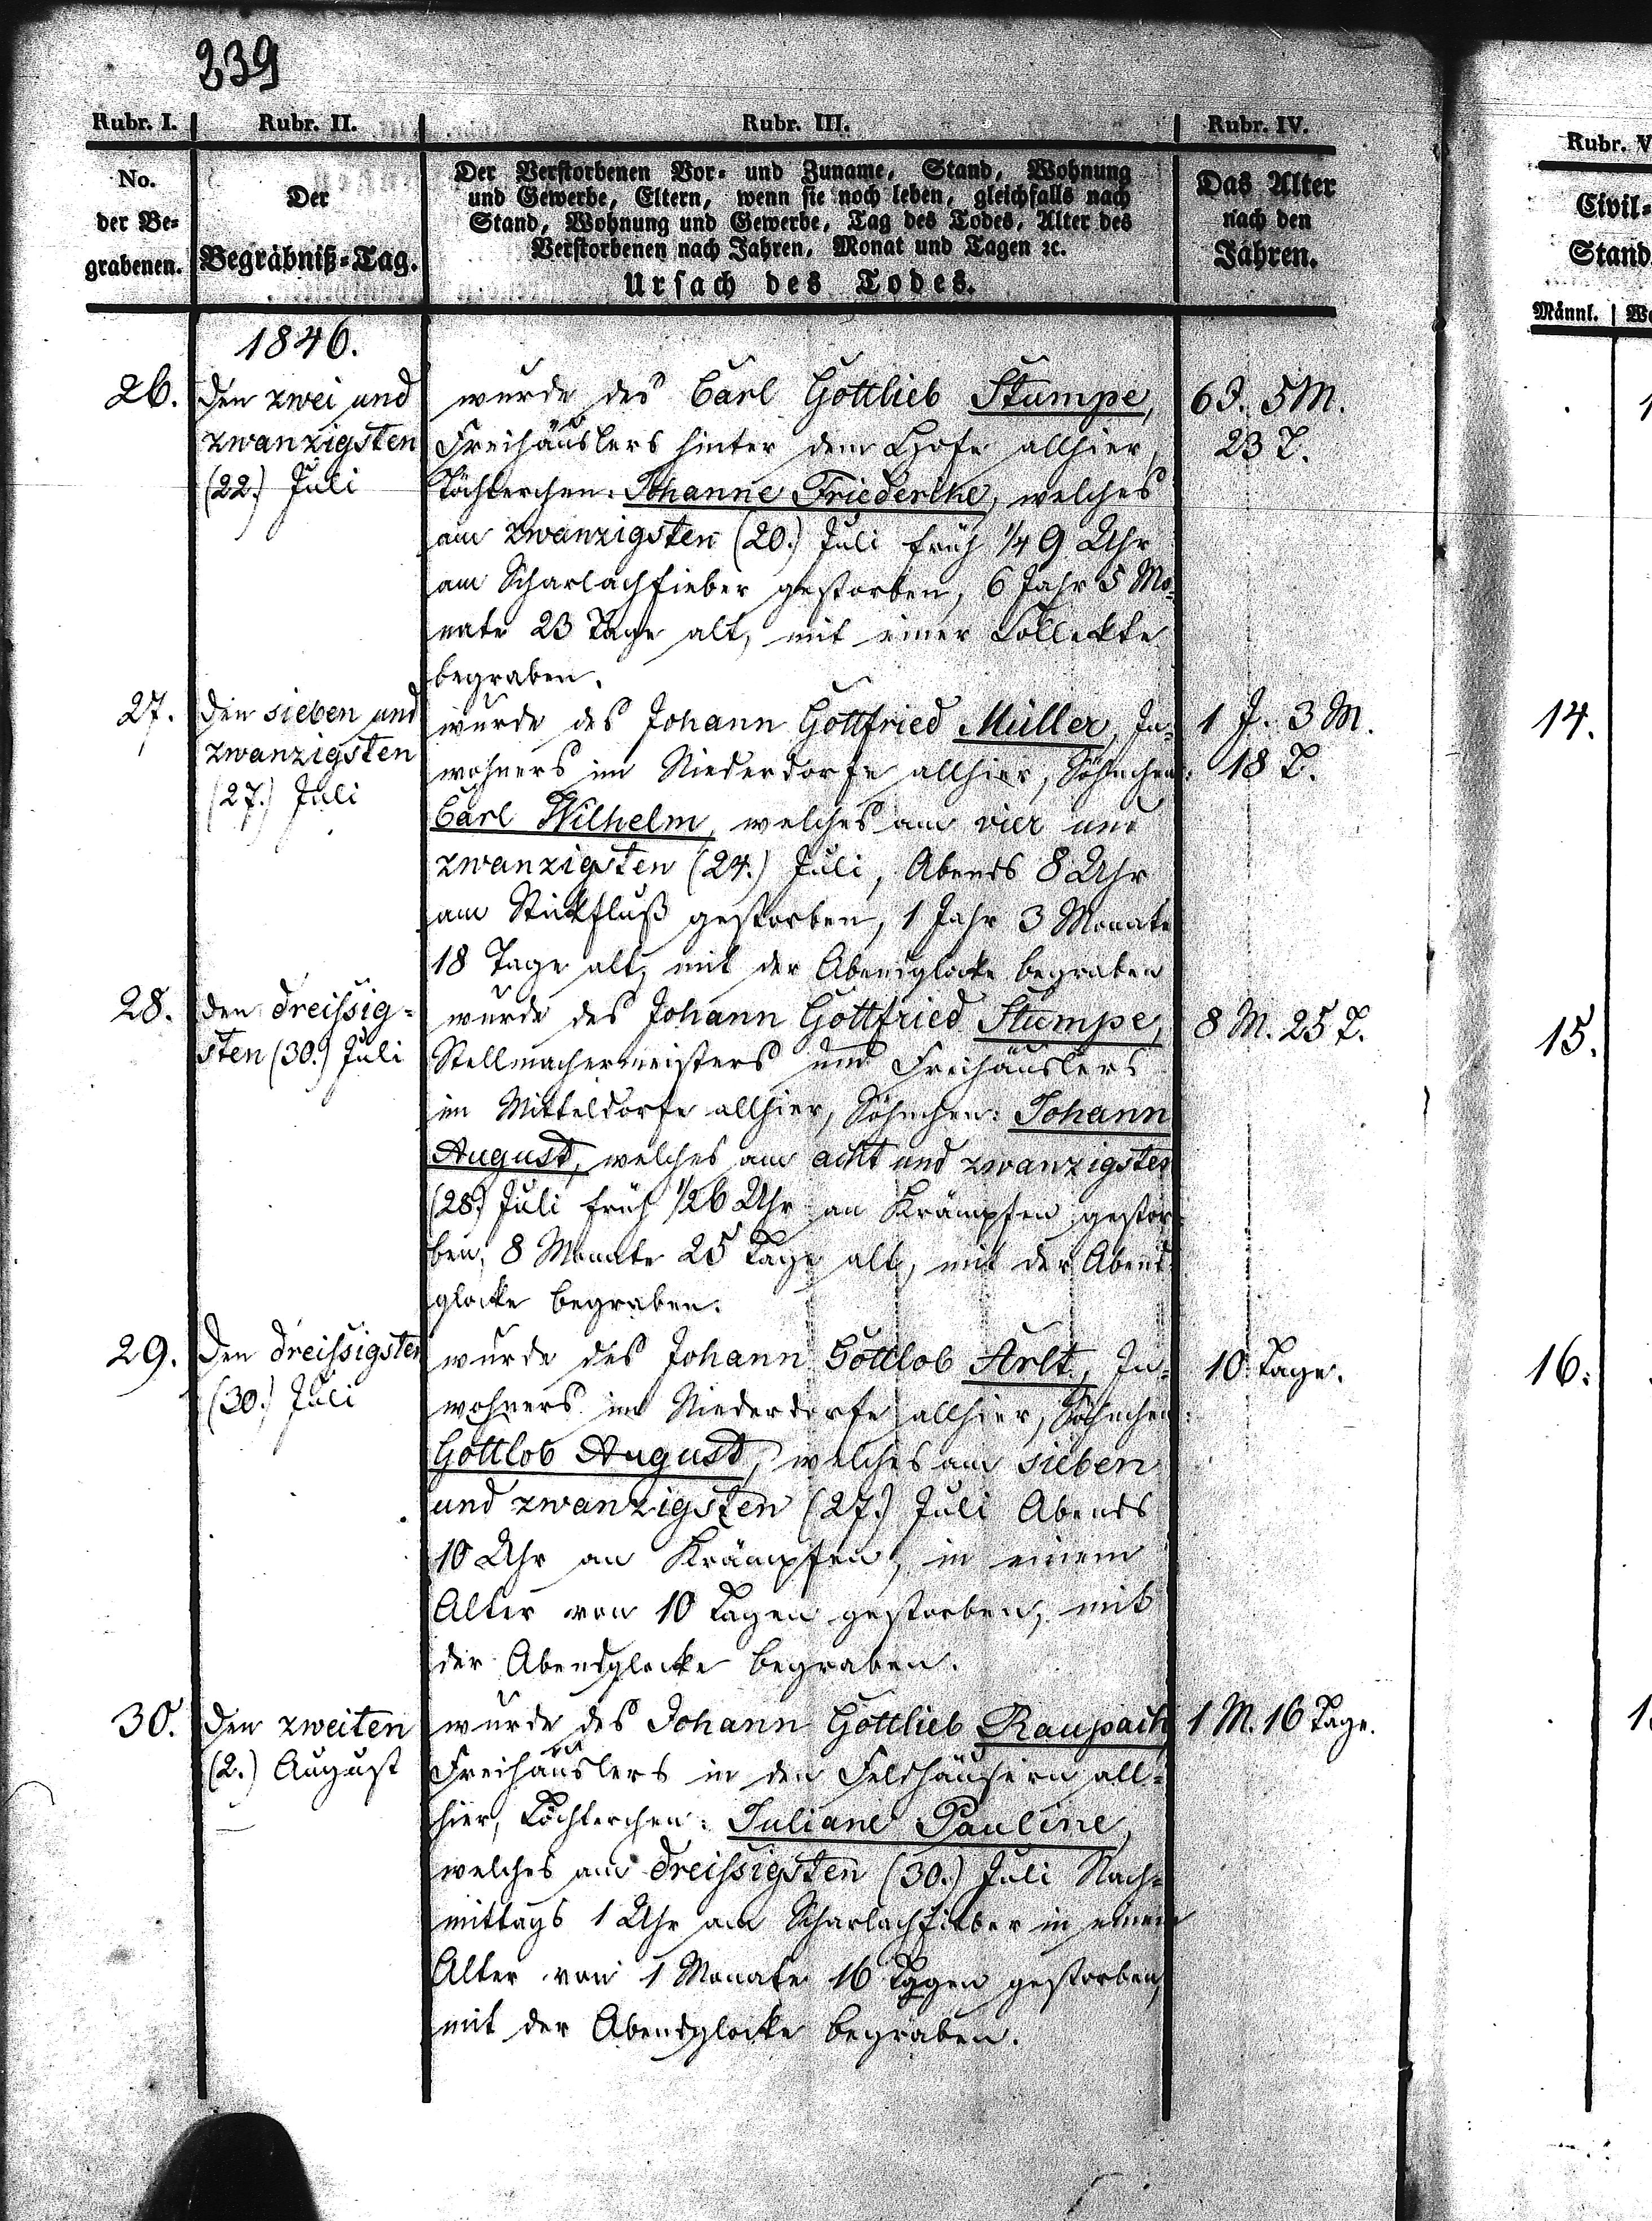 239
Rubr. I. Rubr. II. Rubr. III. Rubr. IV.
No.
der Be-
grabenen.
Der
Begräbniß-Tag.
Der Verstorbenen Vor- und Zuname, Stand, Wohnung
und Gewerbe, Eltern, wenn sie noch leben, gleichfalls nach
Stand, Wohnung und Gewerbe, Tag des Todes, Alter des
Verstorbenen nach Jahren, Monat und Tagen ꝛc.
Ursach des Todes.
Das Alter
nach den
Jahren.
1846.
26.
den zwei und
zwanzigsten
(22.) Juli
wurde des Carl Gottlieb Stumpe,
Freihäuslers hinter dem Hofe allhier,
Töchterchen: Johanne Friederike, welches
am zwanzigsten (20.) Juli früh 1/4 9 Uhr
am Scharlachfieber gestorben, 6 Jahr 5 Mo-
nate 23 Tage alt, mit einer Collekte
begraben.
6 J. 5 M.
23 T.
27.
den sieben und
zwanzigsten
(27.) Juli
wurde des Johann Gottfried Müller, In-
wohners im Niederdorfe allhier, Söhnchen:
Carl Wilhelm, welches am vier und
zwanzigsten (24.) Juli, Abends 8 Uhr
am Stickfluß gestorben, 1 Jahr 3 Monate
18 Tage alt, mit der Abendglocke begraben
1 J. 3 M.
18 T.
28.
den dreißig-
sten (30.) Juli
wurde des Johann Gottfried Stumpe,
Stellmachermeisters und Freihäuslers
im Mitteldorfe allhier, Söhnchen: Johann
August, welches am acht und zwanzigsten
(28.) Juli früh 1/2 6 Uhr an Krämpfen gestor-
ben, 8 Monate 25 Tage alt, mit der Abend-
glocke begraben.
8 M. 25 T.
29.
den dreißigsten
(30.) Juli
wurde des Johann Gottlob Arlt, In-
wohners im Niederdorfe allhier, Söhnchen:
Gottlob August, welches am sieben
und zwanzigsten (27.) Juli Abends
10 Uhr an Krämpfen, in einem
Alter von 10 Tagen gestorben, mit
der Abendglocke begraben.
10 Tage.
30.
den zweiten
(2.) August
wurde des Johann Gottlieb Raupach
Freihäuslers in den Feldhäusern all-
hier, Töchterchen: Juliane Pauline,
welches am dreißigsten (30.) Juli Nach-
mittags 1 Uhr am Scharlachfieber in einem
Alter von 1 Monate 16 Tagen gestorben,
mit der Abendglocke begraben.
1 M. 16 Tage.
Rubr. V
Civil-
Stand
Männl.
14.
15.
16.